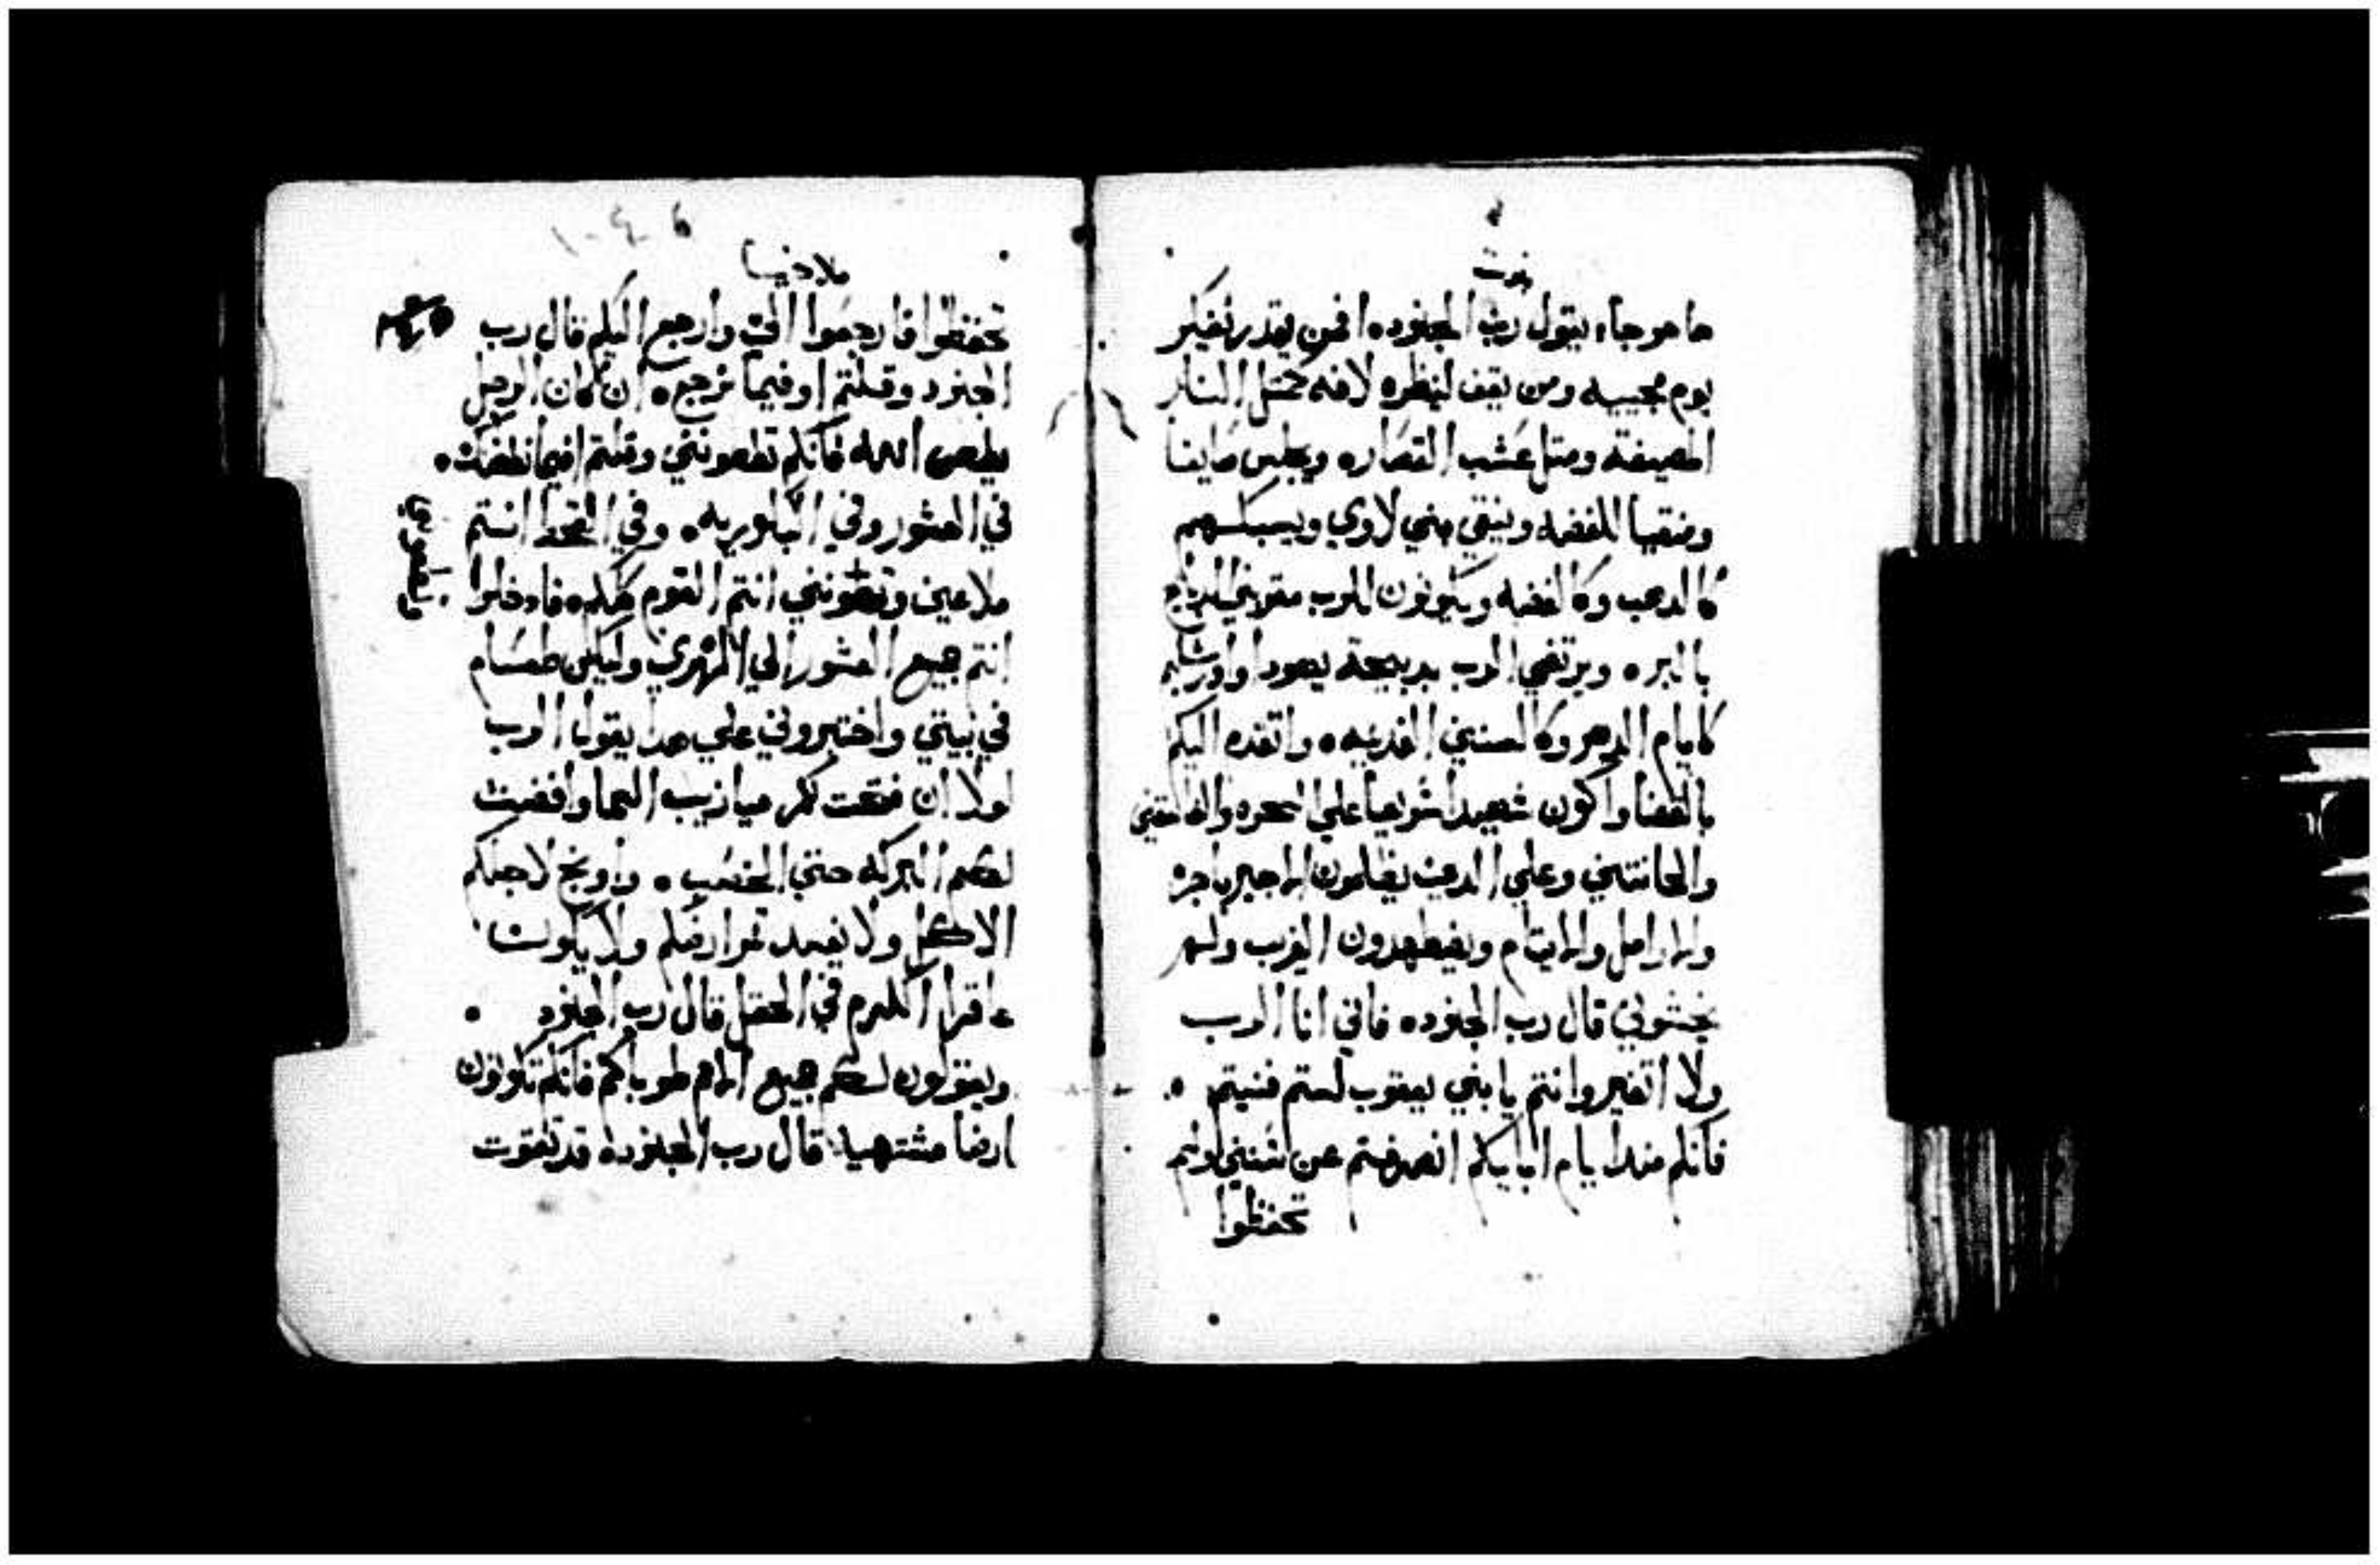 نبوت
ها هو جاء يقول رب الجنود ٥ افمن يقدر يفكر
يوم مجييه ومن يقف لينظره لانه مثل النار
المصيفة ومثل عشب القصاره ويجلس صايفا
ومنقيا للفضه وينقي بني لاوي ويسبكهم
كالدهب وكالفضه ويكونون للرب مقربين الدبايح
بالبر ٥ ويرتضي الرب بدبيحة يهودا واورشليم
كايام الدهر وكالسنين القديمه ٥ واتقدم اليكم
بالقضا واكون شهيدا سريعا علي السحره والفاسقين
والحانتين وعلي الدين يظلمون الاجير باجره
والارامل والايتام ويضطهدون الغريب ولم
يخشوني قال رب الجنود ٥ فاني انا الرب
ولا اتغير وانتم يا بني يعقوب لستم فنيتم ٥
فانكم مند ايام ابايكم انصرفتم عن سنني ولم
تحفظوا
ملاخيا
تحفظوا فارجعوا الي وارجع اليكم قال رب
الجنود وقلتم اوفيما نرجع ٥ ان كان الرجل
يطعن الله فانكم تطعنونني وقلتم افيما نطعنك ٥
في العشور وفي الباكوريه ٥ وفي القحط انتم
ملاعين وتطعنونني انتم القوم كله ٥ فادخلوا
انتم جميع العشور الي الهري وليكن طعام
في بيتي واختبروني علي هدا يقول الرب
اولا ان فتحت لكم ميازيب السما وافضت
لكم البركه حتي الخصب ٥ واوبخ لاجلكم
الاكل ولا يفسد ثمر ارضكم ولا يكون
عاقرا الكرم في الحقل قال رب الجنود ٥
ويقولون لكم جميع الامم طوباكم فانكم تكونون
ارضا مشتهيه قال رب الجنود ٥ قد تقوت